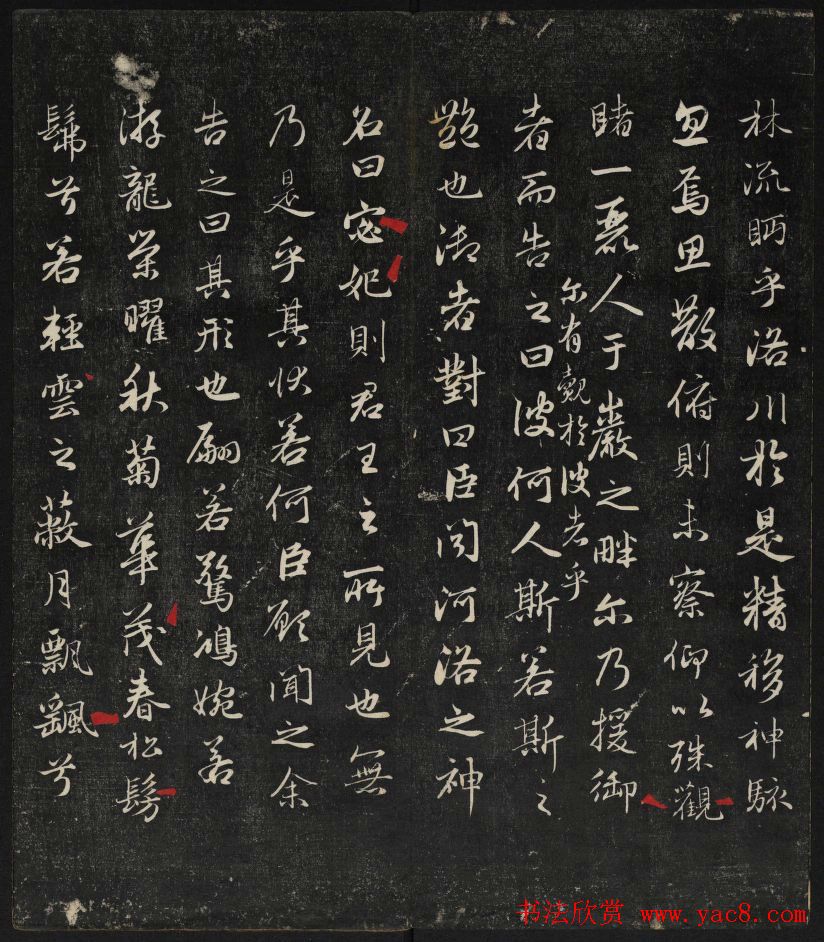 林流眄乎洛川於是精移神駭
忽焉思散俯則未察仰以殊觀
睹一麗人于巖之畔尔乃援御
尔有覿於彼者乎
者而告之曰彼何人斯若斯之
豔也御者對曰臣聞河洛之神
名曰宓妃則君王之所見也無
乃是乎其狀若何臣願聞之余
告之曰其形也翩若驚鴻婉若
游龍榮曜秋菊華茂春松髣
髴兮若輕雲之蔽月飄颻兮
书法欣赏 www.yac8.com